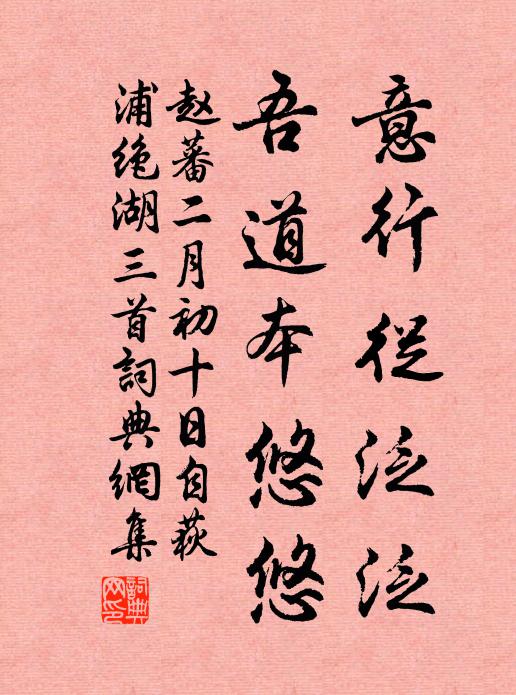 意行從泛泛
吾道本悠悠
赵蕃二月初十日自荻
浦绝湖三首詞典網集
詞典网印